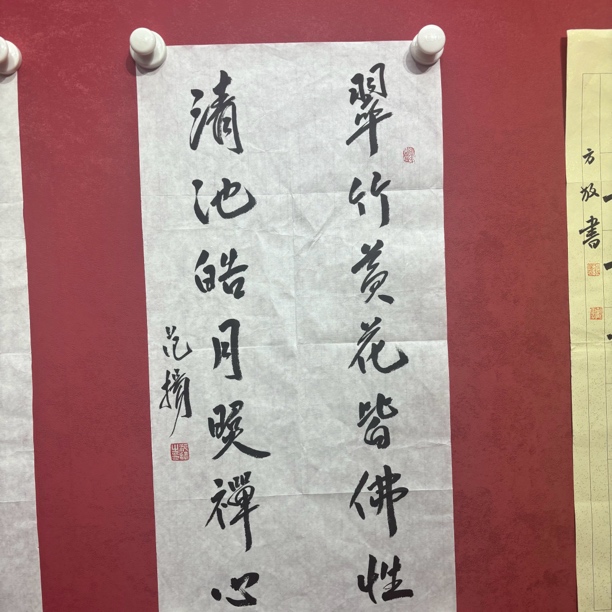 翠竹黄花皆佛性
清池皓月照禪心
方放書